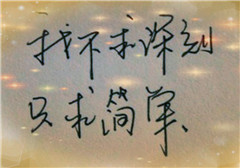 找不求深刻
只求简单、